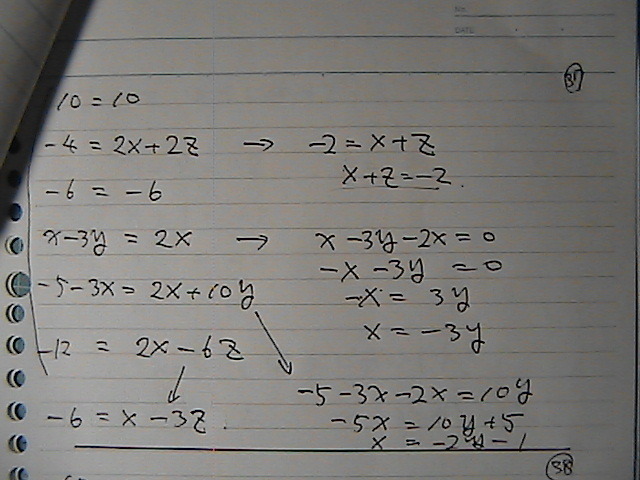 NO.
DATE
37
10 = 10
-4 = 2x+2z → -2 = x+z
x+z=-2.
-6 = -6
x-3y = 2x → x-3y-2x=0
-x-3y = 0
-5-3x = 2x+10y
-x = 3y
x = -3y
-12 = 2x-6z
-5-3x-2x=10y
-6 = x-3z.
-5x = 10y+5
x = -2y-1
38